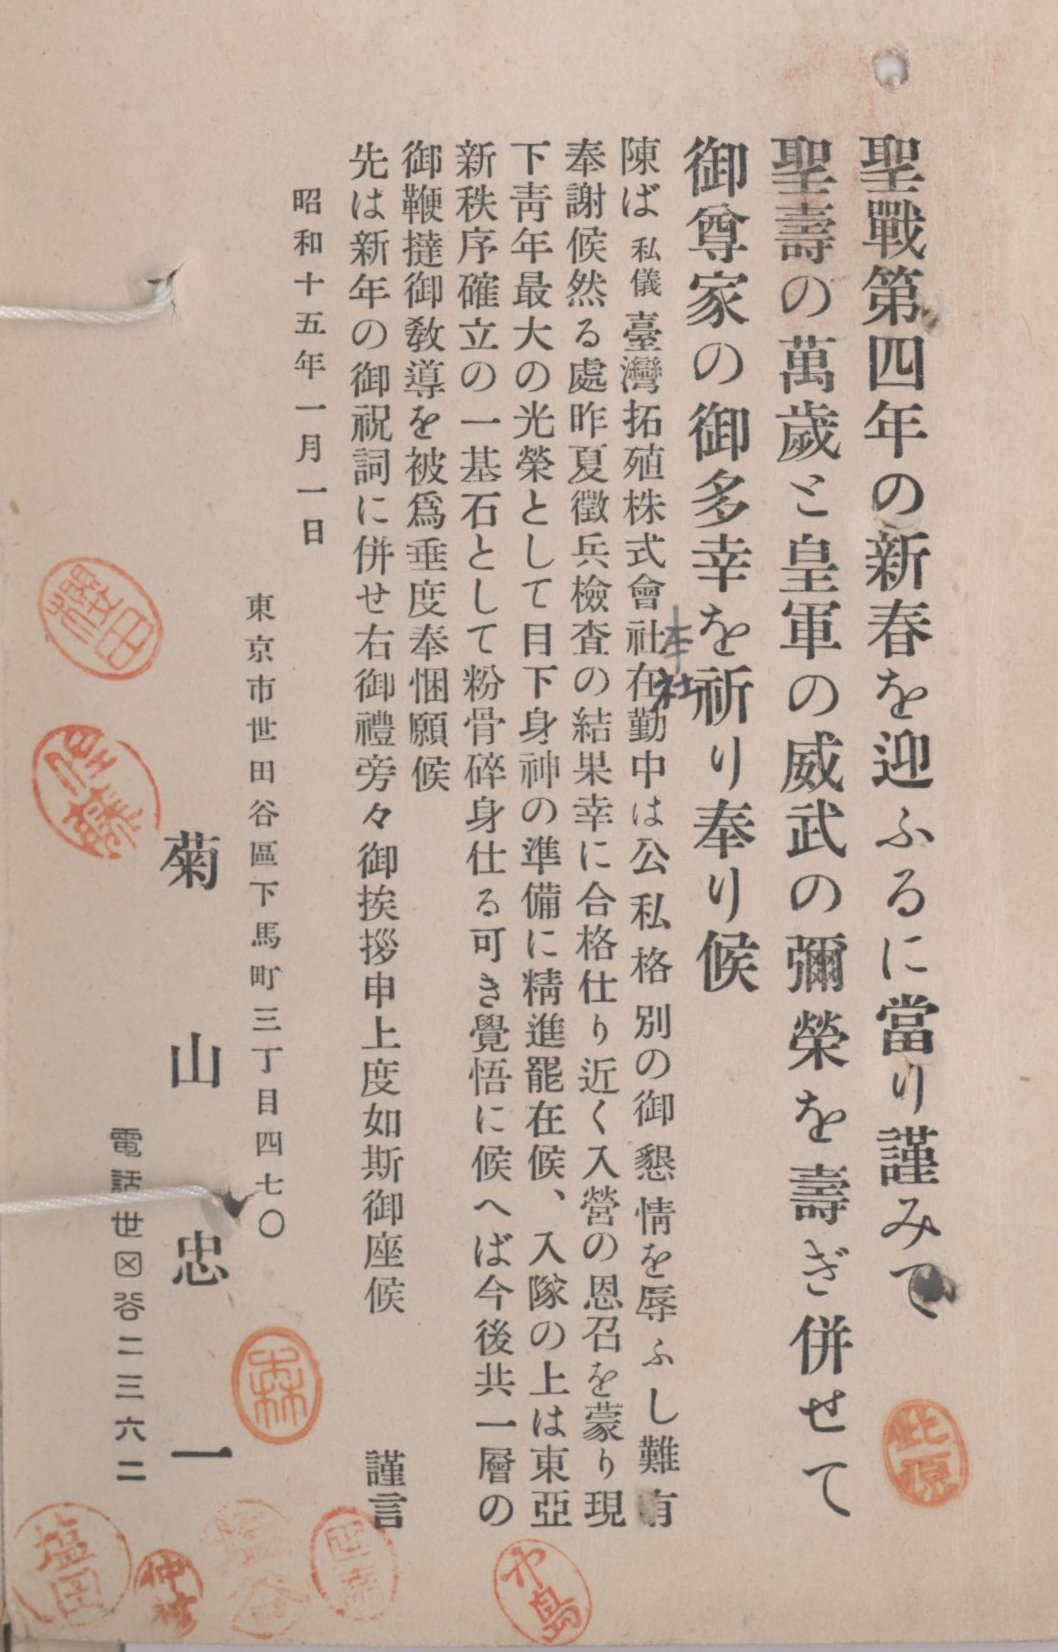 聖戰第四年の新春を迎ふるに當り謹みて
聖壽の萬歲と皇軍の威武の彌榮を壽ぎ併せて
御尊家の御多幸を祈り奉り候
陳ば私儀臺灣拓殖株式會社在勤中は公私格別の御懇情を辱ふし難有
本社
奉謝候然る處昨夏徵兵檢査の結果幸に合格仕り近く入營の恩召を蒙り現
下靑年最大の光榮として目下身神の準備に精進罷在候、入隊の上は東亞
新秩序確立の一基石として粉骨碎身仕る可き覺悟に候へば今後共一層の
御鞭撻御敎導を被爲垂度奉悃願候
先は新年の御祝詞に併せ右御禮旁々御挨拶申上度如斯御座候　謹言
昭和十五年一月一日
東京市世田谷區下馬町三丁目四七〇
菊山忠一
電話世田谷二三六二
此原
森
中島
塩田
仲
谷
田